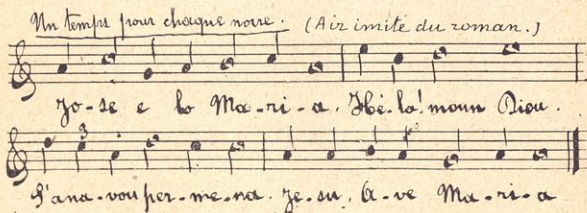 Un temps pour chaque noire. (Air imité du roman.)
Jo-se e lo Ma-ri-a. Hè-la! moun Diou.
3
S'ana-vou per-me-na. Je-su. A-ve Ma-ri-a